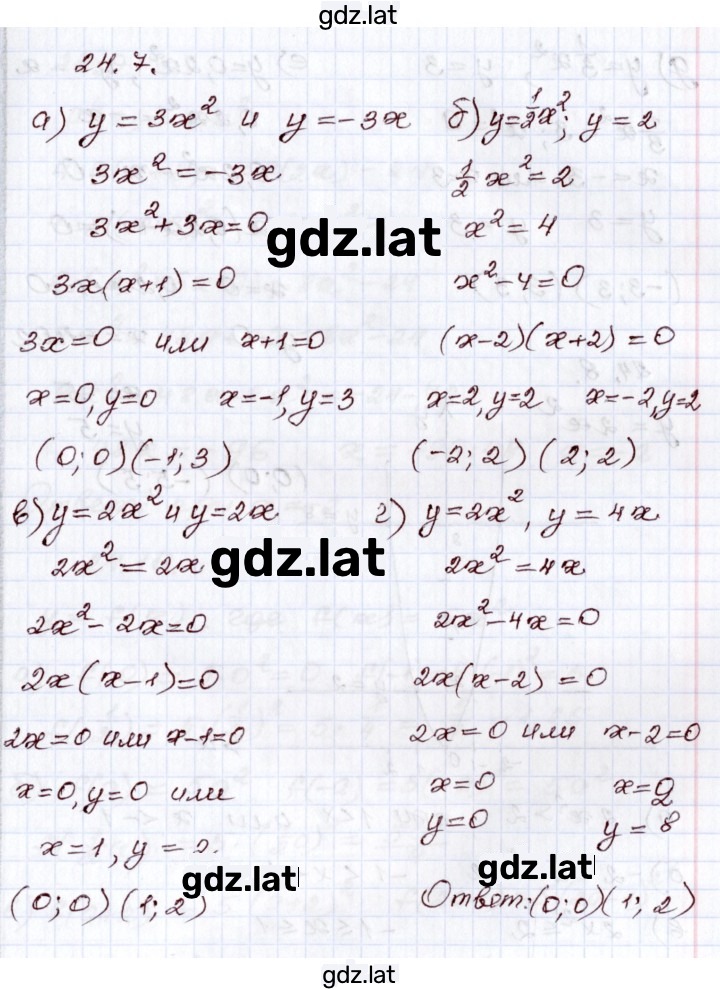 gdz.lat
24.7.
а) y = 3x² и y = -3x
3x² = -3x
3x² + 3x = 0
3x(x+1) = 0
3x = 0 или x+1 = 0
x = 0, y = 0 x = -1, y = 3
(0; 0) (-1; 3)
б) y = 1/2 x²; y = 2
1/2 x² = 2
x² = 4
x² - 4 = 0
(x-2)(x+2) = 0
x = 2, y = 2 x = -2, y = 2
(-2; 2) (2; 2)
gdz.lat
в) y = 2x² и y = 2x
2x² = 2x
2x² - 2x = 0
2x(x-1) = 0
2x = 0 или x-1 = 0
x = 0, y = 0 или
x = 1, y =
(0; 0) (1; 2)
gdz.lat
г) y = 2x², y = 4x
2x² = 4x
2x² - 4x = 0
2x(x-2) = 0
2x = 0 или x-2 = 0
x = 0 x = 2
y = 0 y = 8
Ответ: (0; 0) (1; 2)
gdz.lat
gdz.lat
gdz.lat